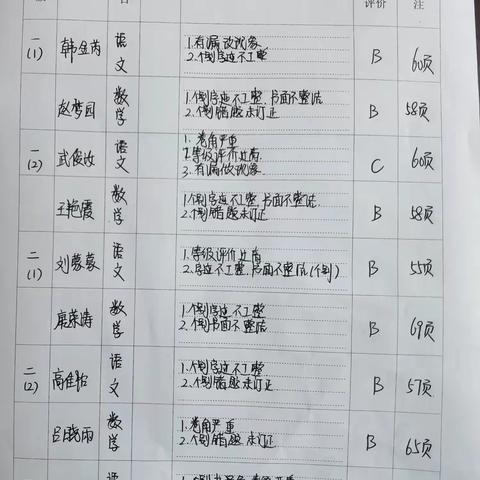 评价 注
一(1) 韩金芮 语文 1.有漏改现象 2.个别字迹不工整 B 60页
赵梦园 数学 1.个别字迹不工整,书面不整洁 2.个别错题未订正 B 58页
一(2) 武俊汝 语文 1.卷角严重 2.等级评价过高 3.有漏做现象. C 60页
王艳霞 数学 1.个别字迹不工整,书面不整洁. 2.个别错题未订正 B 58页
二(1) 刘蒙蒙 语文 1.等级评价过高 2.字迹不工整,书面不整洁(个别) B 55页
荣涛 数学 1.个别字迹不工整 2.个别书面不整洁 B 69页
二(2) 高佳 语文 1.个别字迹不工整 2.个别错题未订正 B 57页
吕晓雨 数学 1.卷角严重 2.个别错题未订正 B 65页
语